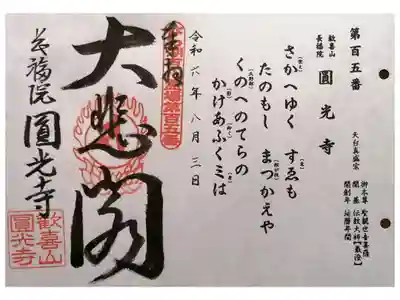 第百五番
歓喜山
長福院
圓光寺
天台真盛宗
御本尊 聖観世音菩薩
開基 伝教大師【最澄】
開創年 延暦年間
さかへゆく すゑも
たのもし まつかえや
くのへのてらの
かけあふくミは
令和六年八月三日
奉拝
第百五番
大悲閣
長福院 圓光寺
歓喜山
圓光寺